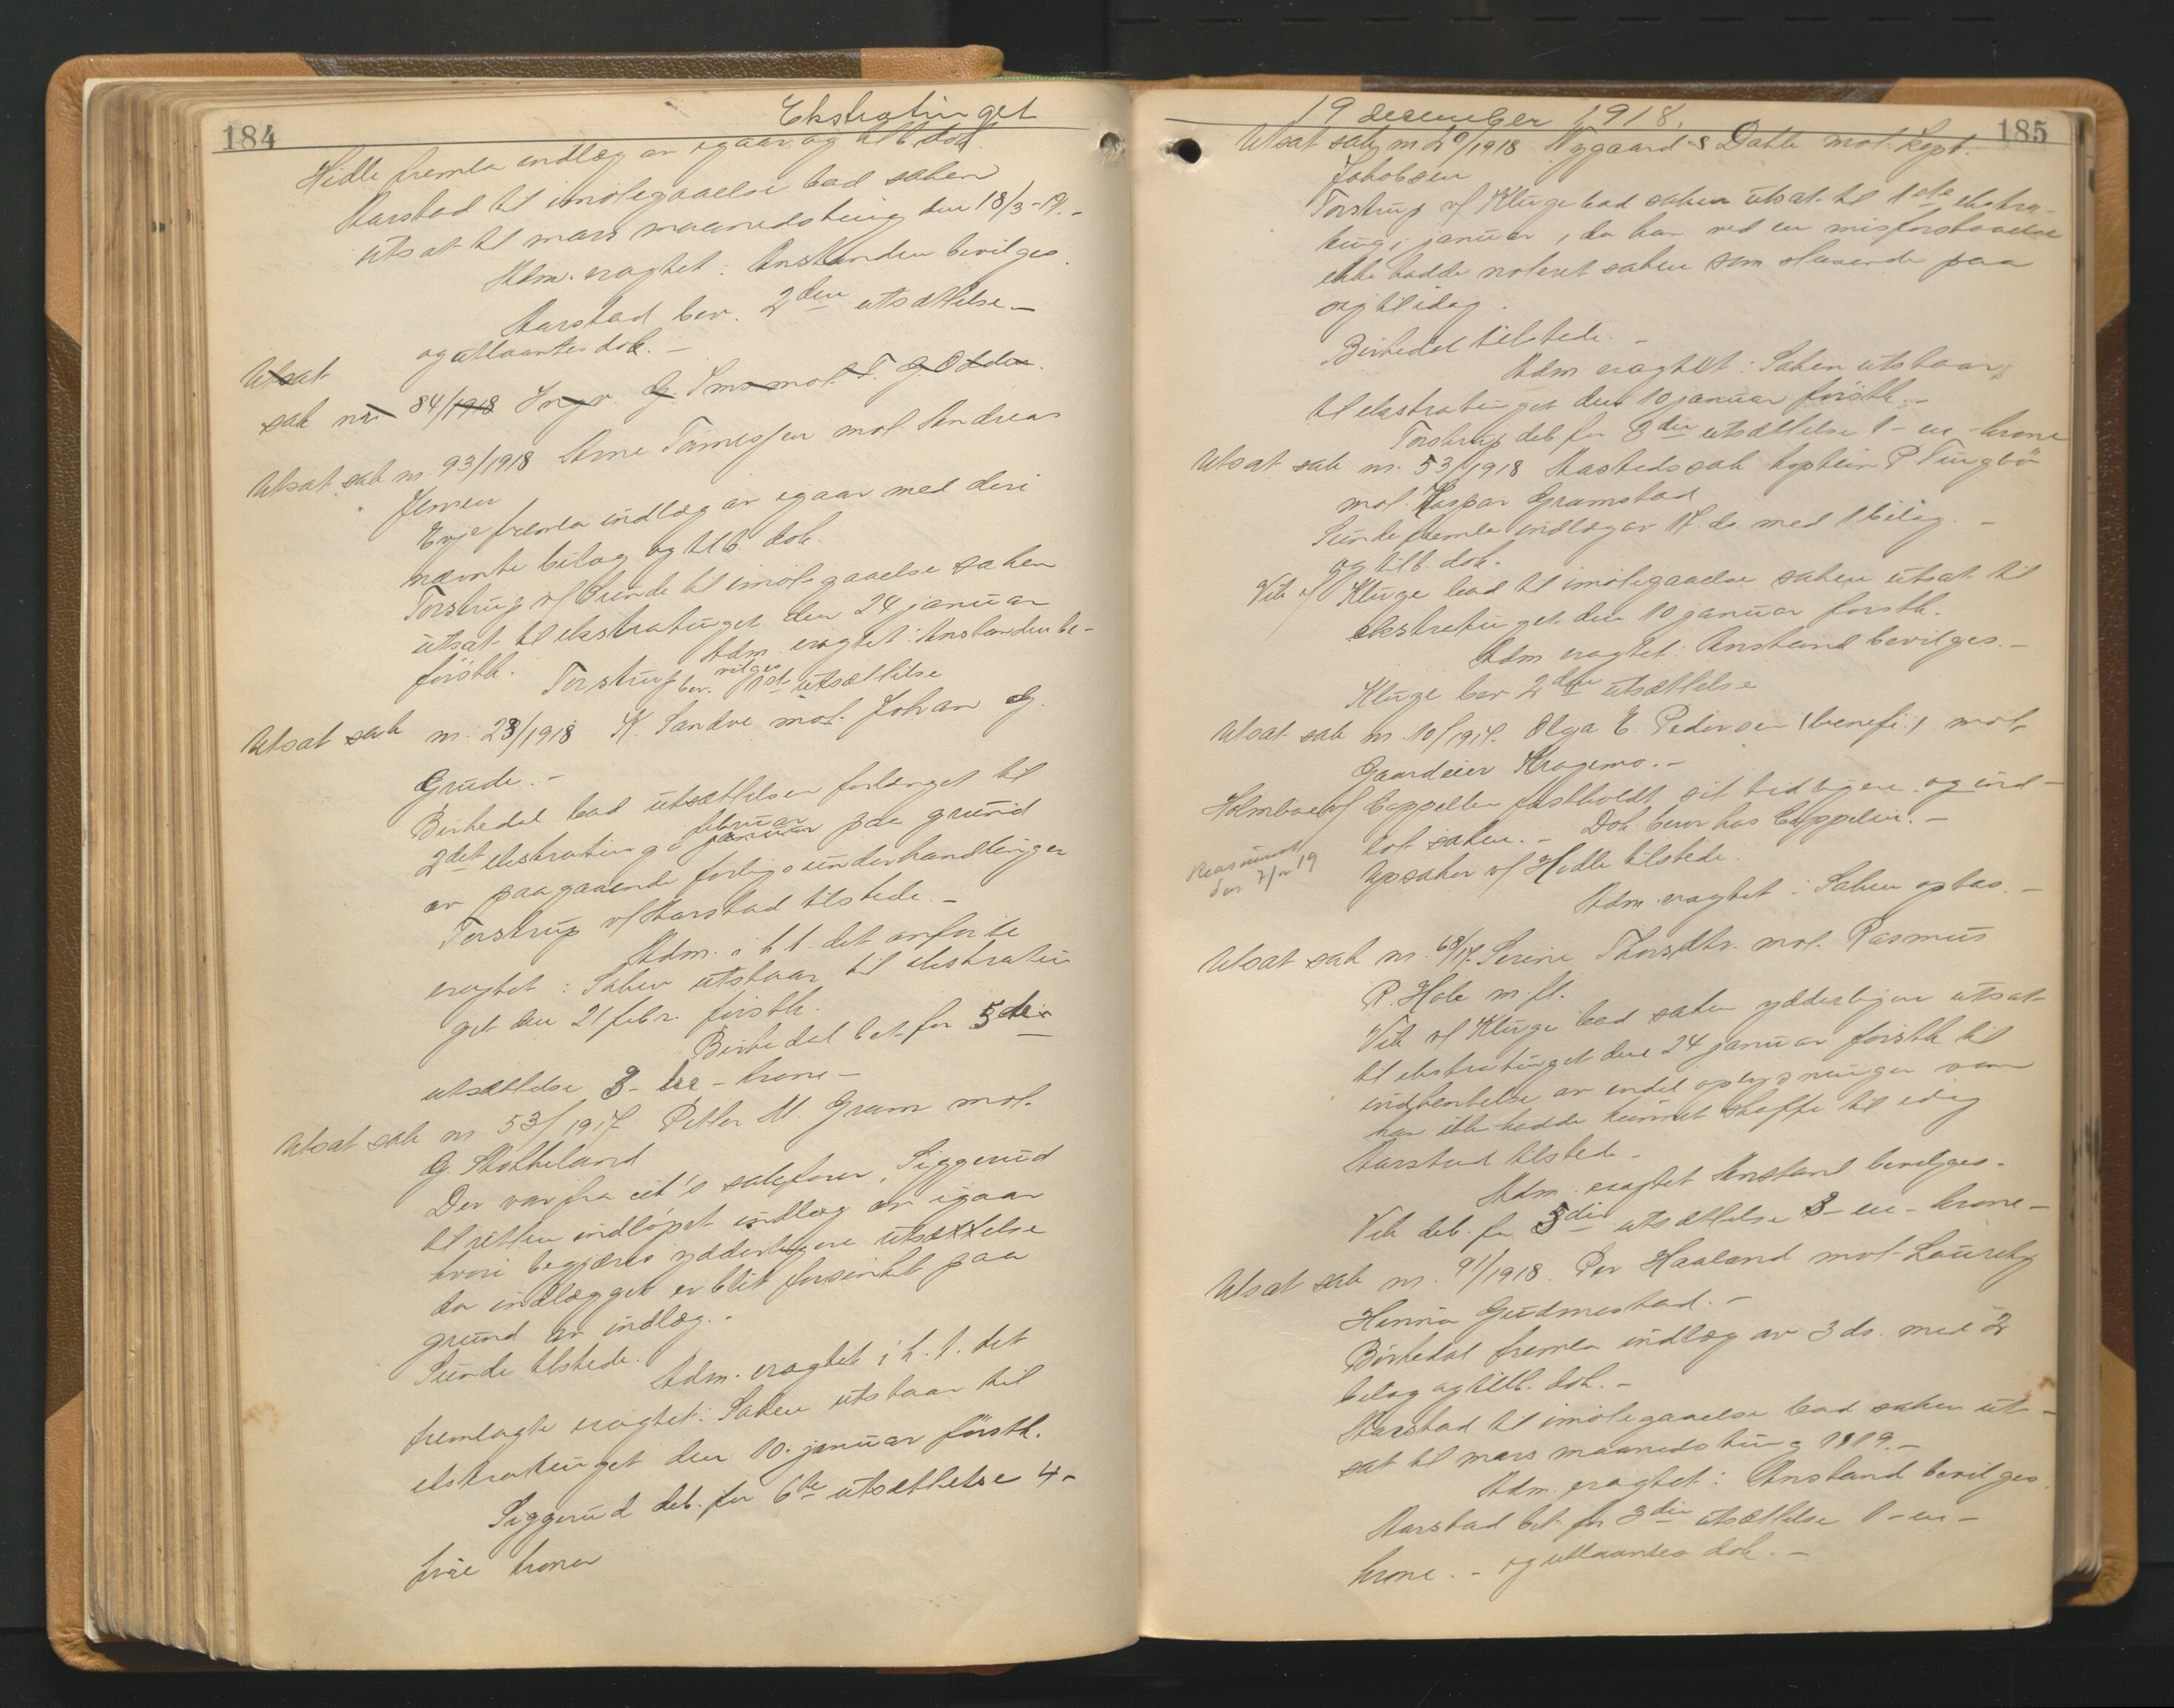 184
Ekstratinget
Hidle fremla indlæg av igaar og tilb dok.
Aarstad til imøtegaaelse bad saken
utsat til mars maanedsting den 18/3-19.-
Adm. eragtet: Anstanden bevilges.
Aarstad bev. 2den utsættelse.-
og utlaantes dok.-
Utsat
sak nr. 84/1918 Ingv. G. Sms mot T. G. Odden.
Utsat sak nr. 93/1918 Arne Tønnessen mot Andreas
Jensen
Evje fremla indlæg av igaar med deri
nævnte bilag og tilb. dok.
Torstrup v/ Sunde til imøtegaaelse saken
utsat til ekstratinget den 24 januar
førstk. Adm. eragtet: Anstanden be-
vilges
Torstrup bev. 1ste utsættelse
Utsat sak nr. 23/1918 K. Sandve mot Johan G.
Grude.-
Birkedal bad utsættelsen forlænget til
februar
2det ekstrating i januar paa grund
av paagaaende forligsunderhandlinger
Torstrup v/ Aarstad tilstede.-
Adm. i h. t. det anførte
eragtet: Saken utstaar til ekstratin
get den 21 febr. førstk.
Birkedal bet. for 5die
utsættelse 3- tre - krone-
Utsat sak nr 53/1917 Petter M. Gram mot
G. Skotteland
Der var fra cit's sakfører, Siggerud
til retten indløpet indlæg av igaar
hvori begjæres ydderligere utsættelse
da indlægget er blit forsinket paa
grund av indlæg.-
Sunde tilstede.
Adm. eragtet i h. t. det
fremlagte eragtet: Saken utstaar til
ekstratinget den 10. januar førstk.
Siggerud deb. for 6te utsættelse 4-
fire kroner
19 december 1918.
185
Utsat sak nr 20/1918 Nygaard & Dahle mot Kapt.
Jakobsen
Torstrup v/ Kluge bad saken utsat til 1ste ekstra-
ting i januar, da han ved en misforstaaelse
ikke hadde noteret saken som staaende paa
sig til idag.
Birkedal tilstede.-
Adm. eragtet: Saken utstaar
til ekstratinget den 10 januar førstk.-
Torstrup deb for 3die utsættelse 1 - en - krone
Utsat sak nr. 53/1918 Aastedssak kaptein P. Tingbø
mot Kaspar Gramstad
Sunde fremla indlæg av 17. ds med 1 bilag.-
og tilb. dok.
Vik v/ Kluge bad til imøtegaaelse saken utsat til
ekstratinget den 10 januar førstk.
Adm eragtet: Anstand bevilges.-
Kluge bev 2den utsættelse
Utsat sak nr. 10/1917. Olga E. Pedersen (benefi.) mot
Gaardeier Kragemo.-
Holmboe v/ Cappelen fastholdt sit tidligere og ind-
lot saken.- Dok. beror hos Cappelen.-
Opsaker v/ Hidle tilstede.
Adm. eragtet: Saken optas.-
Utsat sak nr. 68/17. Serine Thorsdtr. mot Rasmus
P. Hole m. fl.
Vik v/ Kluge bad saken ydderligere utsat
til ekstratinget den 24 januar førstk til
indhentelse av endel oplysninger som
han ikke hadde kunnet skaffe til idag
Aarstad tilstede.
Adm. eragtet Anstand bevilges.
Vik deb. for 5die utsættelse 3 - en - krone-
Utsat sak nr. 91/1918. Per Haaland mot Lauritz
Hanna Gudmestad.-
Birkedal fremla indlæg av 3 ds. med 2
bilag og tilb. dok.-
Aarstad til imøtegaaelse bad saken ut-
sat til mars maanedsting 1919.-
Adm. eragtet: Anstand bevilges.
Aarstad bet. for 3die utsættelse 1 - en -
krone.- og utlaantes dok.-